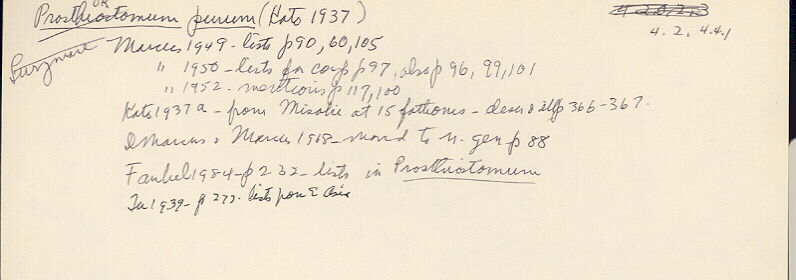 OR
Prosthiostomum purum (Kato 1937)
4. 2. 4.4.1
Marcus 1949 - lists p 90, 60, 105
" 1950 - lists for comp p 97, also p 96, 99, 101
" 1952 - mentions p 117, 100
Kato 1937a - from Misakie at 15 fathoms - descr & ill p 366-367.
E Marcus & Marcus 1968 - moved to n. gen p 88
Faubel 1984 - p 232 - lists in Prosthiostomum
Tu 1939 - p 272 - lists from E Asia